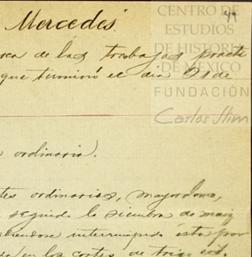 Mercedes.
49
CENTRO DE
ESTUDIOS
DE HISTORIA
DE MÉXICO
FUNDACIÓN
Carlos Slim
rca de los trabajos
que terminó el día 31 de
ordinario.
tes ordinarios, mayordomo,
seguido la siembra de maiz
interrumpido esta por
en los cortes de trigo